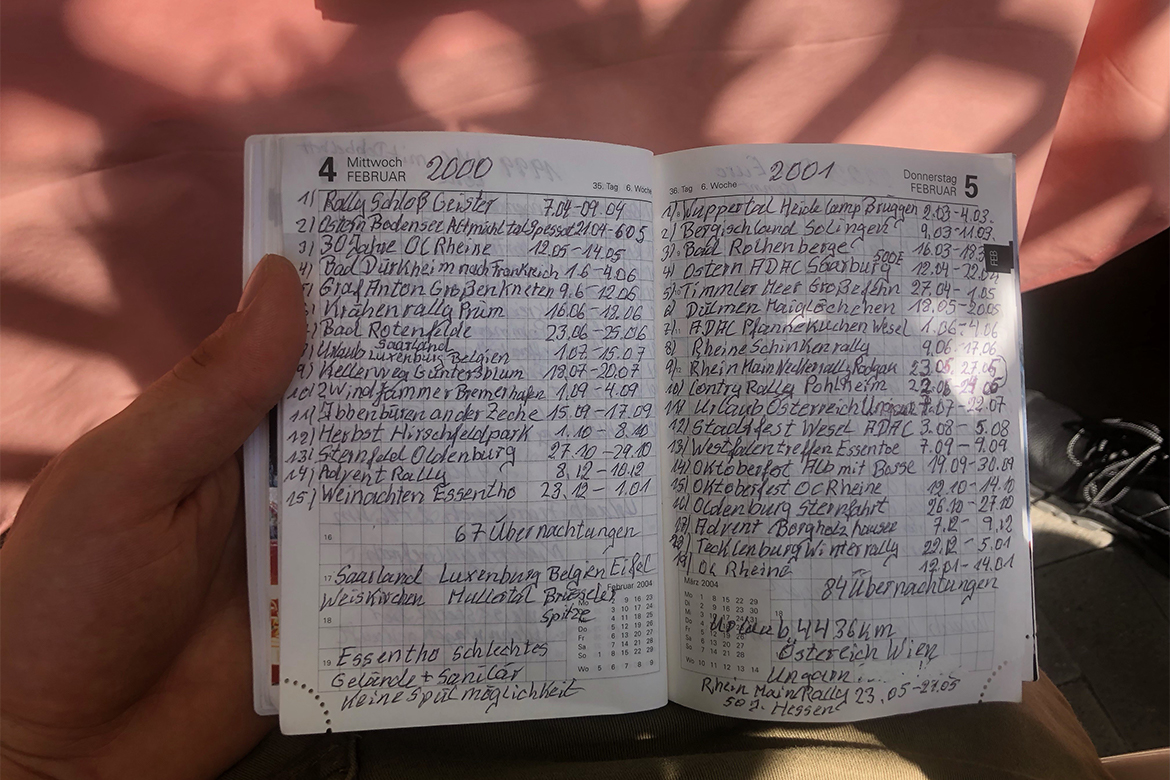 4 Mittwoch
FEBRUAR
2000
35. Tag 6. Woche
1) Rally Schloß Geister 7.04-09.04
2) Ostern Bodensee Altmühltal Spessat 21.04-6.05
3) 30 Jahre OC Rheine 12.05-14.05
4) Bad Dürkheim nach Frankreich 1.6-4.06
Graf Anton Großenkneten 9.6-12.06
Krähenrally Prüm 16.06-18.06
Bad Rotenfelde 23.06-25.06
Saarland
Urlaub Luxenburg Belgien 1.07-15.07
9) Kellerweg Guntersblum 18.07-20.07
10) Windjammer Bremerhafen 1.09-4.09
11) Ibbenbüren an der Zeche 15.09-17.09
12) Herbst Hirschfeldpark 1.10-8.10
13) Sternfeld Oldenburg 27.10-29.10
14) Advent Rally 8.12-10.12
15) Weinachten Essentho 23.12-1.01
16
67 Übernachtungen
17 Saarland Luxenburg Belgien Eifel
Weiskirchen Mullertal Brüsseler
18 Spitze
Februar 2004
Mo 2 9 16 23
Di 3 10 17 24
Mi 4 11 18 25
Do 5 12 19 26
Fr 6 13 20 27
Sa 7 14 21 28
So 1 8 15 22 29
Wo 5 6 7 8 9
19 Essentho schlechtes
Gelände + Sanitär
Keine Spülmöglichkeit
36. Tag 6. Woche
2001
Donnerstag
FEBRUAR 5
FEB
1) Wuppertal Heide Camp Brüggen 2.03-4.03.
2) Bergischland Solingen 9.03-11.03.
3) Bad Rothenberge 16.03-18.3
500E
4) Ostern ADAC Saarburg 12.04-22.04
5) Timmler Meer Großefehn 27.04-1.05
6) Dülmen Maiglöckchen 18.05-20.05
7) ADAC Pfannekuchen Wesel 1.06-4.06
8) Rheine Schinkenrally 9.06-17.06
9) Rhein Main Nelkenrally Rodgau 23.05.27.05
10) Contry Rally Pohlheim
11) Urlaub Österreich Ungarn 7.07-22.07
12) Stadtfest Wesel ADAC 3.08-5.08
13) Westfalentreffen Essentoe 7.09-9.09
14) Oktoberfest Alb mit Bosse 19.09-30.09
15) Oktoberfest OC Rheine 12.10-14.10
16) Oldenburg Sternfahrt 26.10-27.10
17) Advent Borgholzhausee 7.12-9.12
Tecklenburg Winterrally 22.12-5.01
19) OC Rheine 12.01-14.01
84 Übernachtungen
März 2004
Mo 1 8 15 22 29
Di 2 9 16 23 30
18
Wo 10 11 12 13 14
Urlaub 4436 km
Östereich Wien
Ungarn
Rhein Main Rally 23.05-27.05
50 J. Hessen